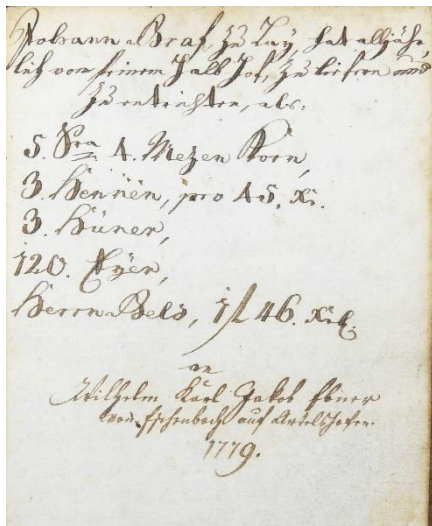 Johann Graf zu Lay, hat alljähr,
lich von seinem Halb Hof, zu liefern und
zu entrichten, als:
5. Sra 4. Mezen Korn,
3. Hennen, pro 45. Xr.
3. Hüner,
120. Eÿer,
Herrn Gelt, 1 f 46. Xr.
an
Wilhelm Karl Jakob Ebner
von Eschenbach auf Artelshofen.
1779.